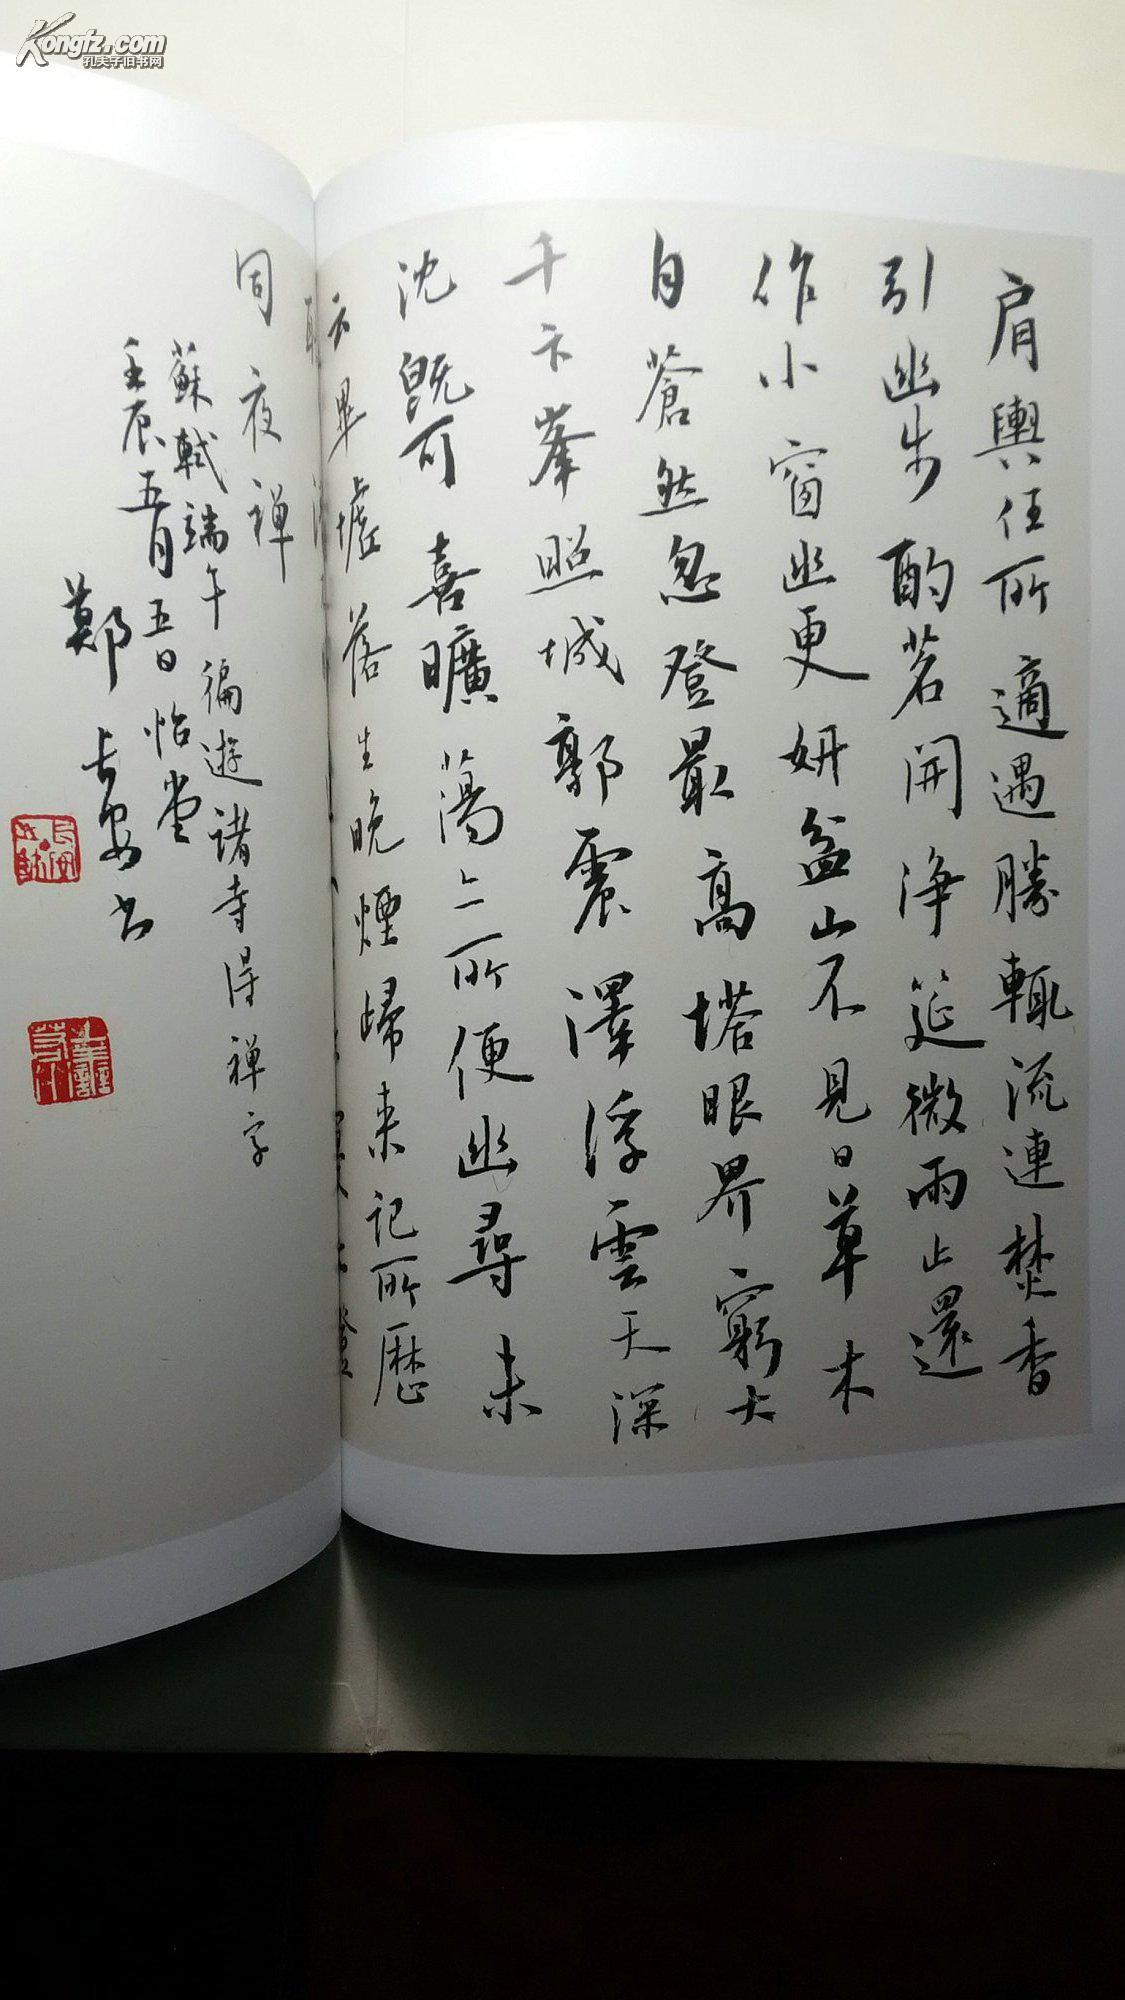 Kongfz.com
孔夫子旧书网
肩輿任所適遇勝輒流連焚香
引幽步酌茗開淨筵微雨止還
作小窗幽更妍盆山不見日草木
自蒼然忽登最高塔眼界窮大
千卞峯照城郭震澤浮雲天深
沈既可喜曠蕩亦所便幽尋未
云畢墟落生晚煙歸来記所歷
同夜禅
蘇軾端午徧遊諸寺得禅字
壬辰五月五日怡堂
鄭长安书